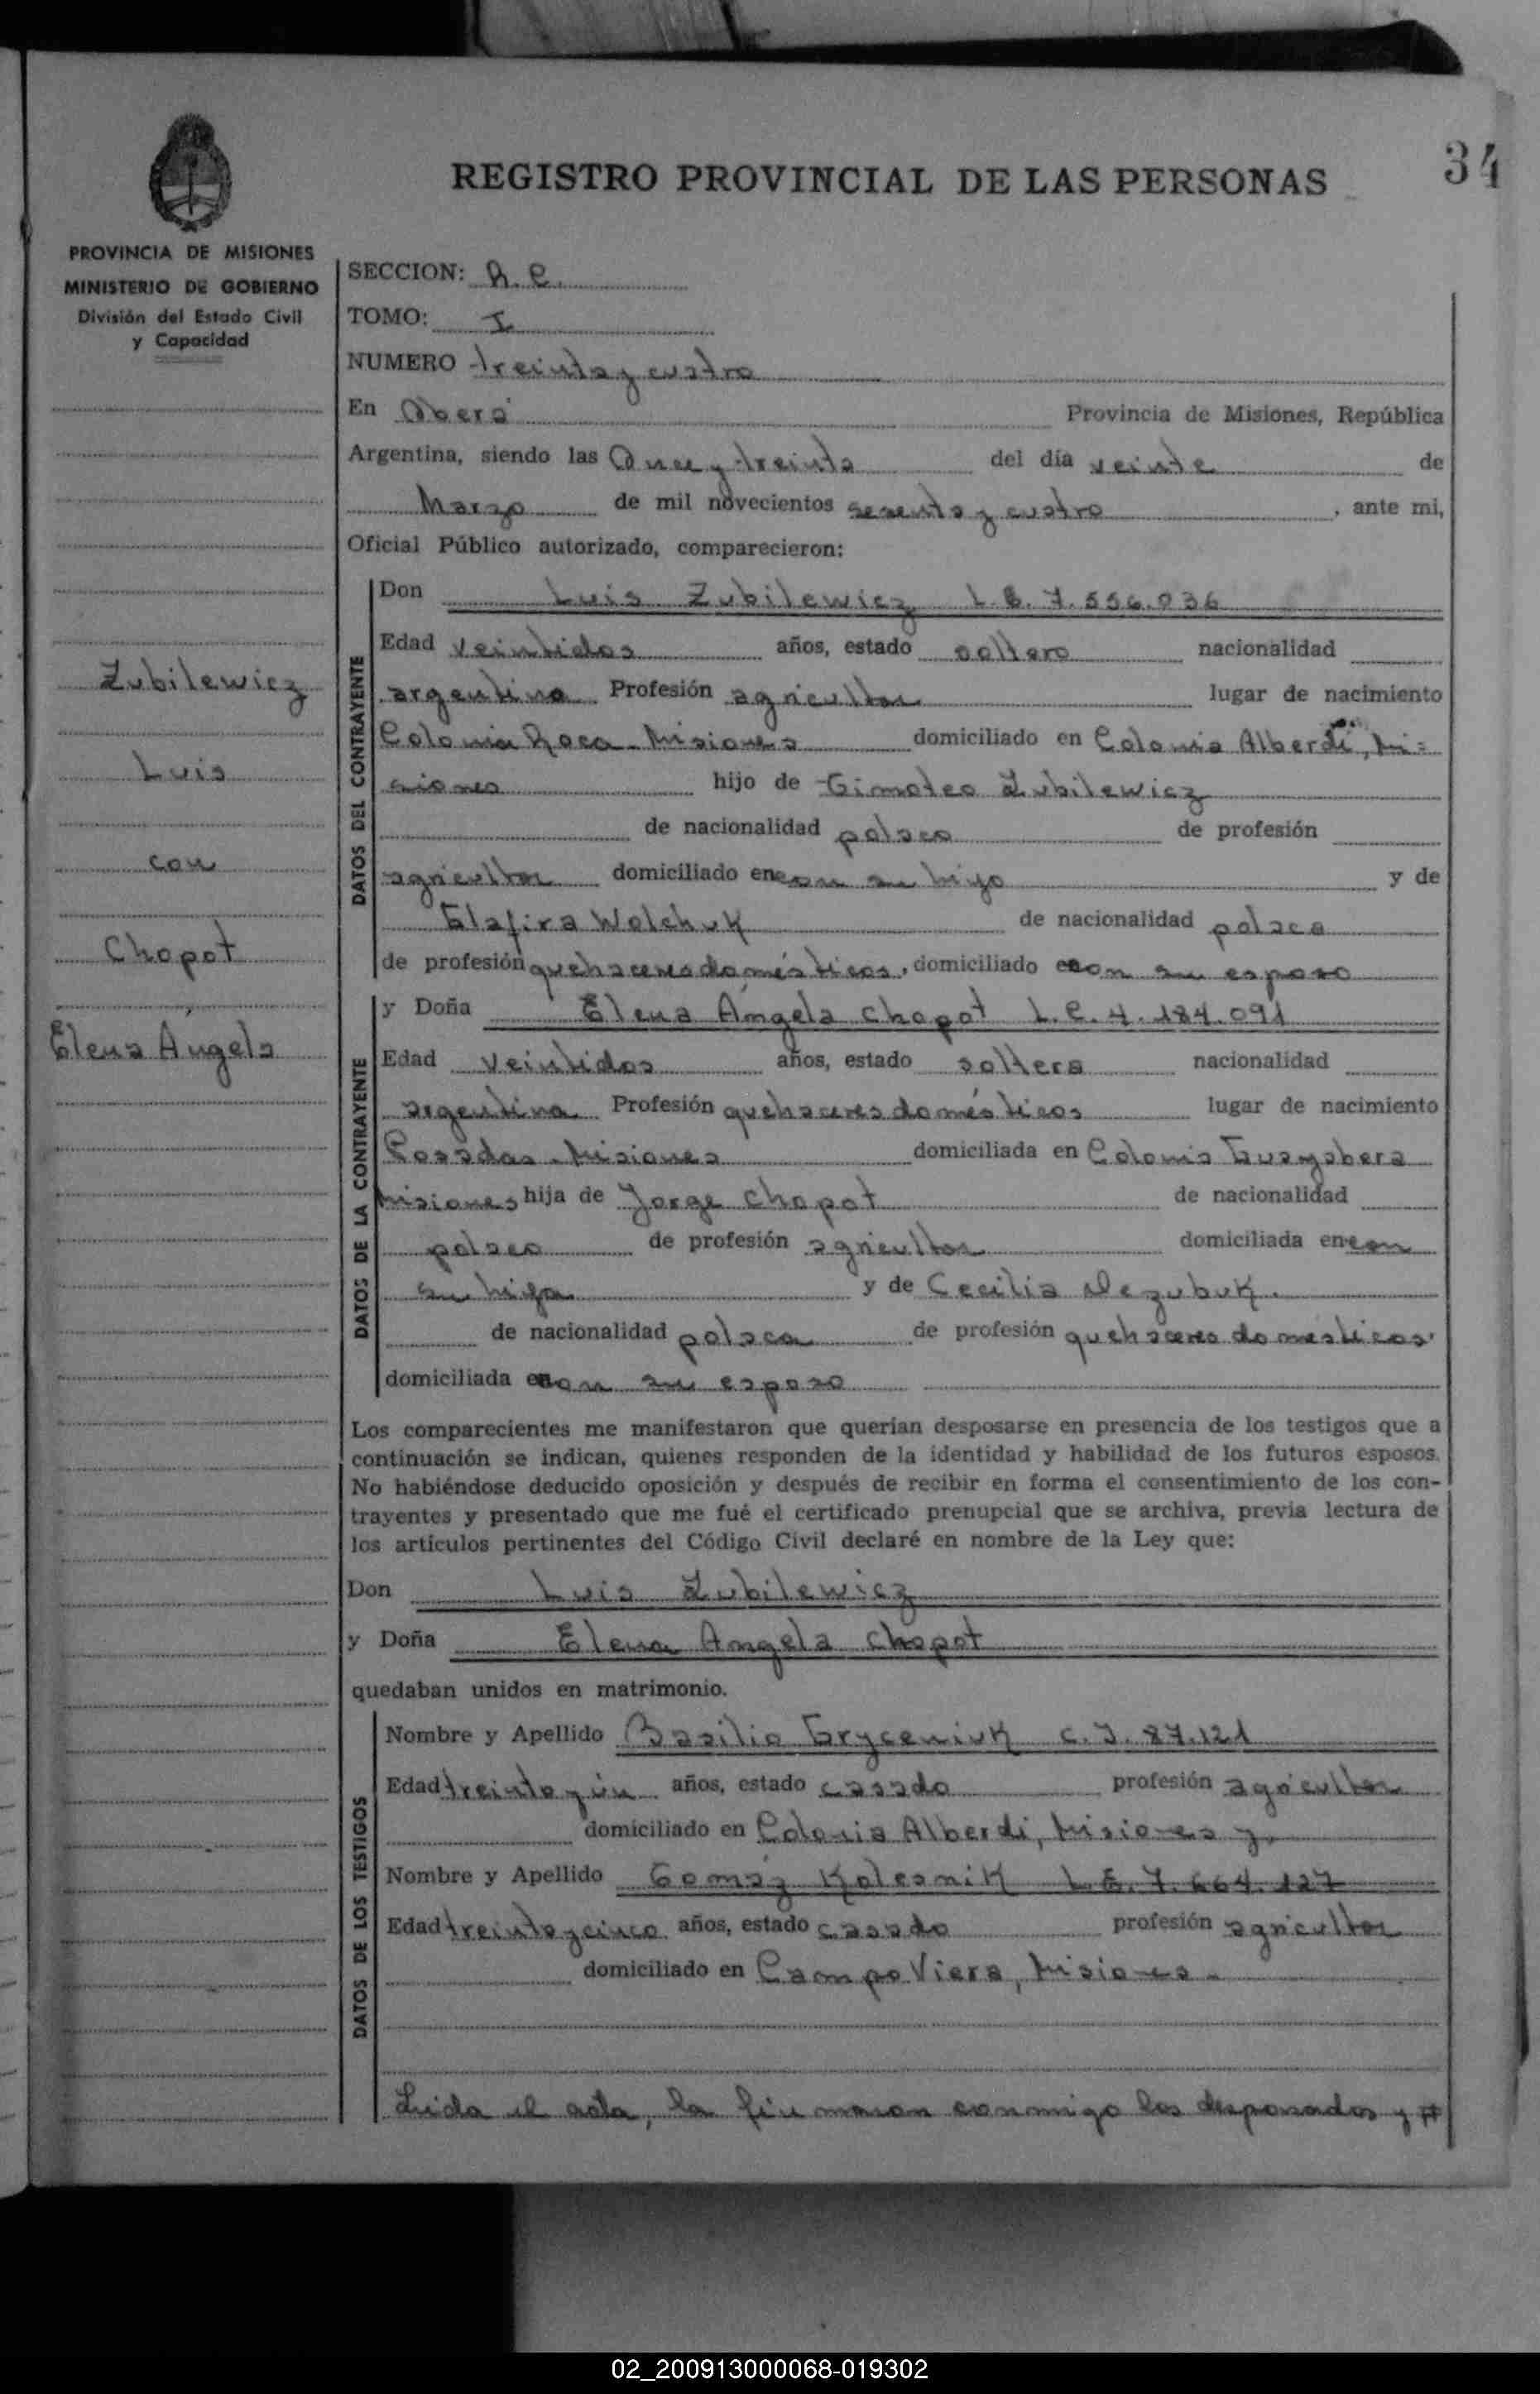 34
REGISTRO PROVINCIAL DE LAS PERSONAS
PROVINCIA DE MISIONES
MINISTERIO DE GOBIERNO
División del Estado Civil
y Capacidad
Zubilewicz
Luis
con
Chopot
Elena Angela
SECCION: R. C.
TOMO: I
NUMERO treinta y cuatro
En Oberá Provincia de Misiones, República
Argentina, siendo las Once y treinta del día veinte de
Marzo de mil novecientos sesenta y cuatro, ante mi,
Oficial Público autorizado, comparecieron:
DATOS DEL CONTRAYENTE
Don Luis Zubilewicz L.E. 7.556.036
Edad veintidos años, estado soltero nacionalidad
argentina Profesión agricultor lugar de nacimiento
Colonia Roca - Misiones domiciliado en Colonia Alberdi, Mi=
siones hijo de Timoteo Zubilewicz
de nacionalidad polaco de profesión
agricultor domiciliado en con su hijo y de
Glafira Wolchuk de nacionalidad polaca
de profesión quehaceres domésticos, domiciliado en con su esposo
DATOS DE LA CONTRAYENTE
y Doña Elena Angela Chopot L.C. 4.184.091
Edad veintidos años, estado soltera nacionalidad
argentina Profesión quehaceres domésticos lugar de nacimiento
Posadas - Misiones domiciliada en Colonia Guayabera
Misiones hija de Jorge Chopot de nacionalidad
polaco de profesión agricultor domiciliada en con
su hija y de Cecilia
de nacionalidad polaca de profesión quehaceres domésticos.
domiciliada en con su esposo
Los comparecientes me manifestaron que querían desposarse en presencia de los testigos que a
continuación se indican, quienes responden de la identidad y habilidad de los futuros esposos.
No habiéndose deducido oposición y después de recibir en forma el consentimiento de los con-
trayentes y presentado que me fué el certificado prenupcial que se archiva, previa lectura de
los artículos pertinentes del Código Civil declaré en nombre de la Ley que:
Don Luis Zubilewicz
y Doña Elena Angela Chopot
quedaban unidos en matrimonio.
DATOS DE LOS TESTIGOS
Nombre y Apellido Basilio Gryceniuk C.I. 87.121
Edad treinta y ún años, estado casado profesión agricultor
domiciliado en Colonia Alberdi, Misiones y
Nombre y Apellido Tomáz Kolesnik L.E. 7.664.127
Edad treinta y cinco años, estado casado profesión agricultor
domiciliado en Campo Viera, Misiones -
Leida el acta, la firmaron conmigo los desposados y #
02_200913000068-019302